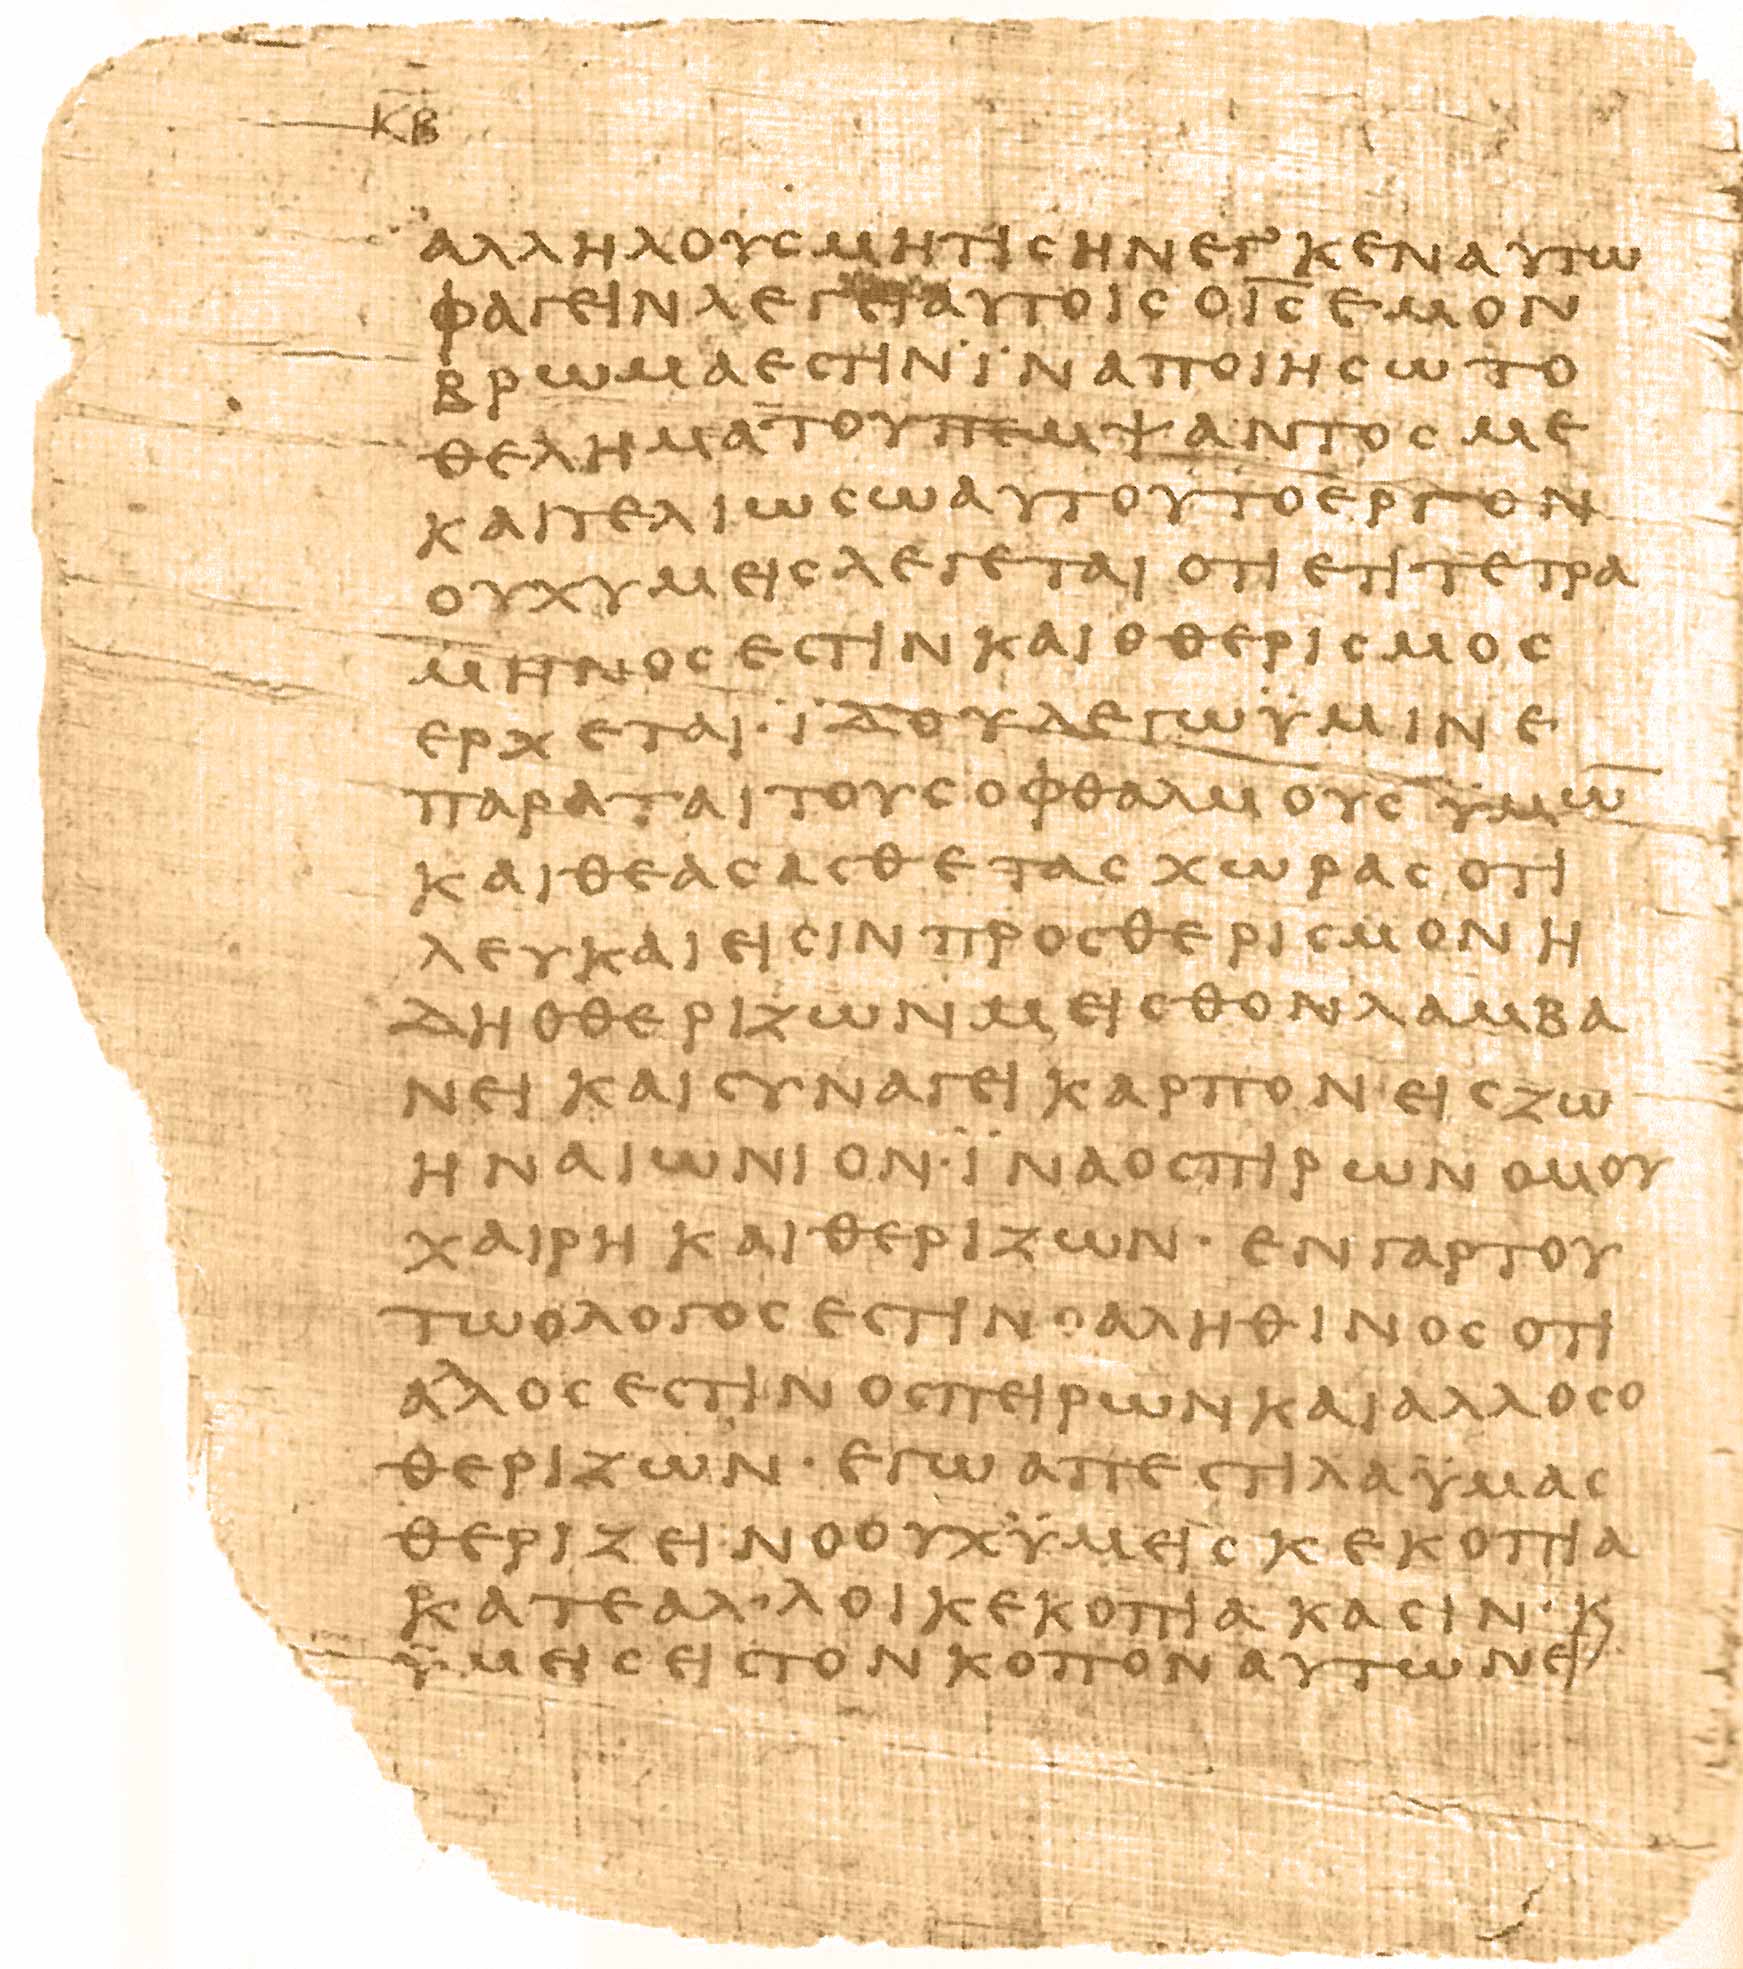 ΚΒ
ΑΛΛΗΛΟΥϹΜΗΤΙϹΗΝΕΓΚΕΝΑΥΤΩ
ΦΑΓΕΙΝΛΕΓΕΙΑΥΤΟΙϹΟΙ̅Ϲ̅ΕΜΟΝ
ΒΡΩΜΑΕϹΤΙΝΪΝΑΠΟΙΗϹΩΤΟ
ΘΕΛΗΜΑΤΟΥΠΕΜΨΑΝΤΟϹΜΕ
ΚΑΙΤΕΛΙΩϹΩΑΥΤΟΥΤΟΕΡΓΟΝ
ΟΥΧΥΜΕΙϹΛΕΓΕΤΑΙΟΤΙΕΤΙΤΕΤΡΑ
ΜΗΝΟϹΕϹΤΙΝΚΑΙΟΘΕΡΙϹΜΟϹ
ΕΡΧΕΤΑΙ·ΪΔΟΥΛΕΓΩΫΜΙΝΕ
ΠΑΡΑΤΑΙΤΟΥϹΟΦΘΑΛΜΟΥϹΫΜΩ̅
ΚΑΙΘΕΑϹΑϹΘΕΤΑϹΧΩΡΑϹΟΤΙ
ΛΕΥΚΑΙΕΙϹΙΝΠΡΟϹΘΕΡΙϹΜΟΝΗ
ΔΗΟΘΕΡΙΖΩΝΜΕΙϹΘΟΝΛΑΜΒΑ
ΝΕΙΚΑΙϹΥΝΑΓΕΙΚΑΡΠΟΝΕΙϹΖΩ
ΗΝΑΙΩΝΙΟΝ·ΪΝΑΟϹΠΙΡΩΝΟΜΟΥ
ΧΑΙΡΗΚΑΙΘΕΡΙΖΩΝ·ΕΝΓΑΡΤΟΥ
ΤΩΟΛΟΓΟϹΕϹΤΙΝΟΑΛΗΘΙΝΟϹΟΤΙ
ΑΛΛΟϹΕϹΤΙΝΟϹΠΕΙΡΩΝΚΑΙΑΛΛΟϹΟ
ΘΕΡΙΖΩΝ·ΕΓΩΑΠΕϹΤΙΛΑΫΜΑϹ
ΘΕΡΙΖΕΙΝΟΟΥΧΫΜΕΙϹΚΕΚΟΠΙΑ
ΚΑΤΕΑΛ·ΛΟΙΚΕΚΟΠΙΑΚΑϹΙΝ·Κ
ΫΜΕΙϹΕΙϹΤΟΝΚΟΠΟΝΑΥΤΩΝΕΙ